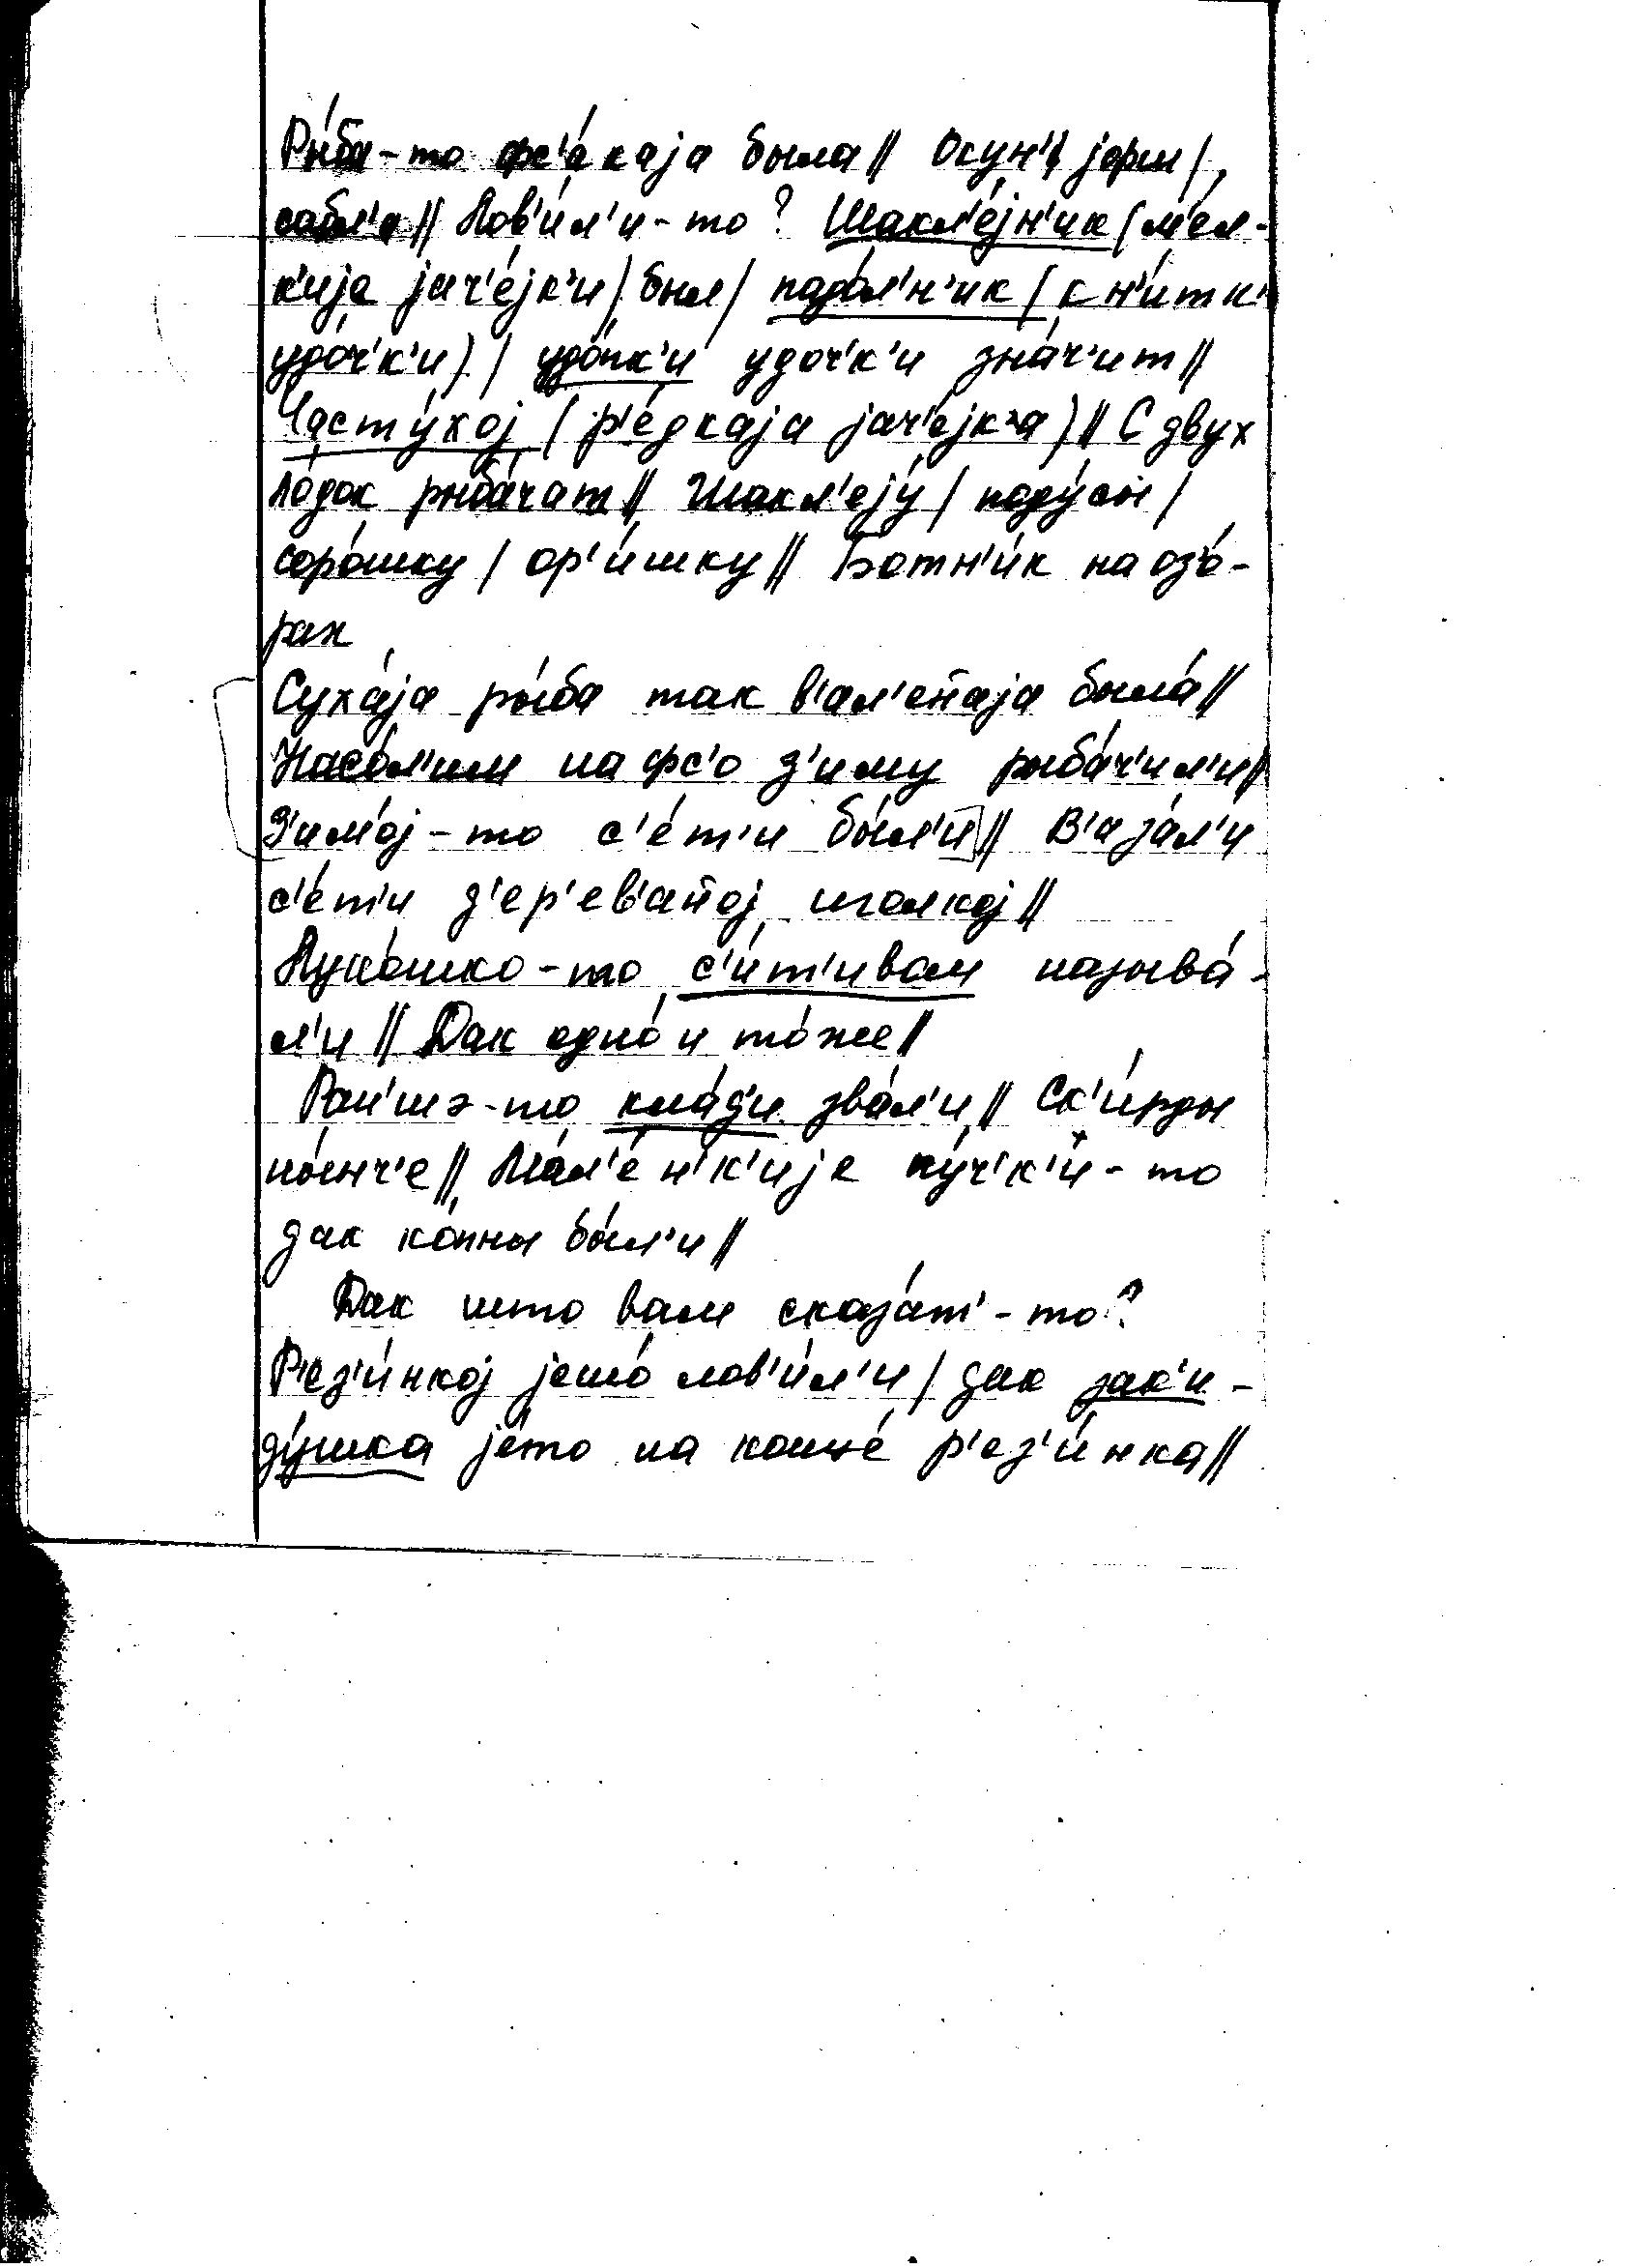 Ры́ба-то фс'а́каjа была // Окун'/ jорш /,
сабл'а // Лов'и́л'и-то? Шакл'е́jн'ик (м'ел-
к'иjе jач'е́jк'и) был / падо́л'н'ик (к н'и́тк'
удо́ч'к'и) / удо́пк'и удоч'к'и зна́ч'ит //
Часту́хоj (р'е́дкаjа jач'е́jк'а) // С двух
ло́док рыба́чат // Шакл'еjу́ / поду́сы /
соро́шку / ор'и́шку // Ботн'и́к на озо́-
рах
Суха́jа ры́ба так в'ал'ен̄аjа была́ //
Насо́л'им на фс'о з'иму рыба́ч'ил'и //
З'имо́j-то с'е́т'и бы́л'и // В'аза́л'и
с'е́т'и д'ер'ев'ан̄оj иголкоj //
Луко́шко-то с'и́т'ивом называ́-
л'и // Дак одно́ и то́же //
Ран'шэ-то кла́д'и зва́л'и // Ск'и́рды
ны́нч'е // Мал'е́н'к'иjе ку́ч'к'и-то
дак ко́пны бы́л'и //
Дак што вам сказа́т'-то?
Р'ез'и́нкоj jешо́ лов'и́л'и / дак зак'и-
ду́шка jе́то на конце́ р'ез'и́нка //